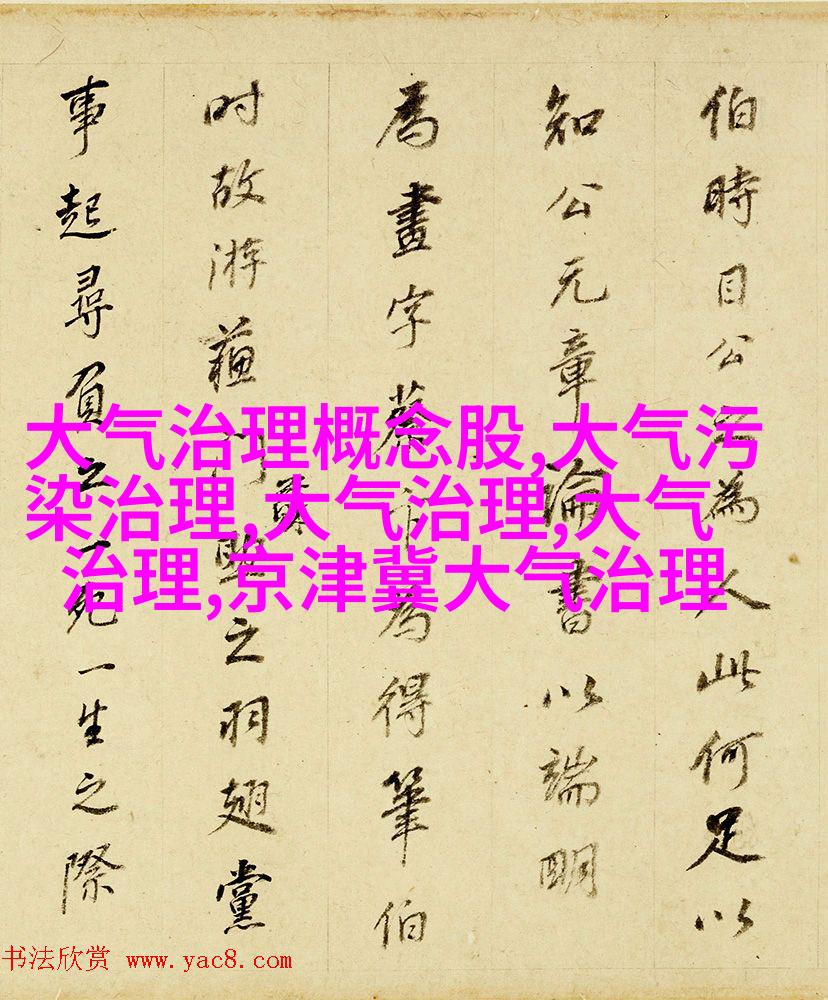 伯時目公為人此何足以
知公元章論書以端明
為畫字蔡為得筆伯
时故游蘇門之羽翅黨
事起尋負之一死一生之際
大气治理概念股,大气污
染治理,大气治理,大气
治理,京津冀大气治理
书法欣赏 www.yac8.com